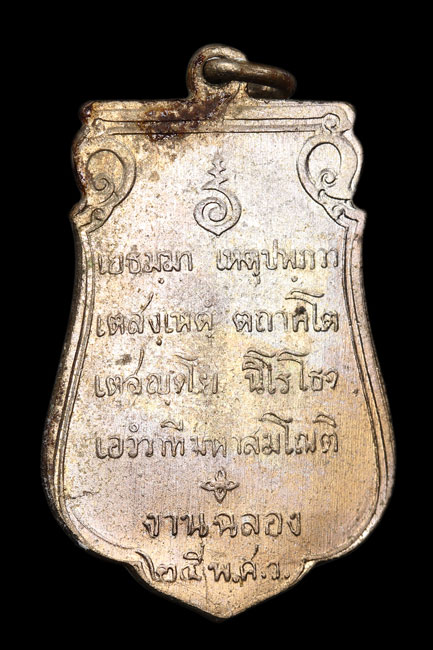 เยธมฺมา เหตุปฺพภวา
เตสํงฺเหตุํ ตถาคโต
เตสญฺจโย นิโรโธจ
เอวํวาที มหาสมโณติ
งานฉลอง
๒๕ พ.ศ.ว.